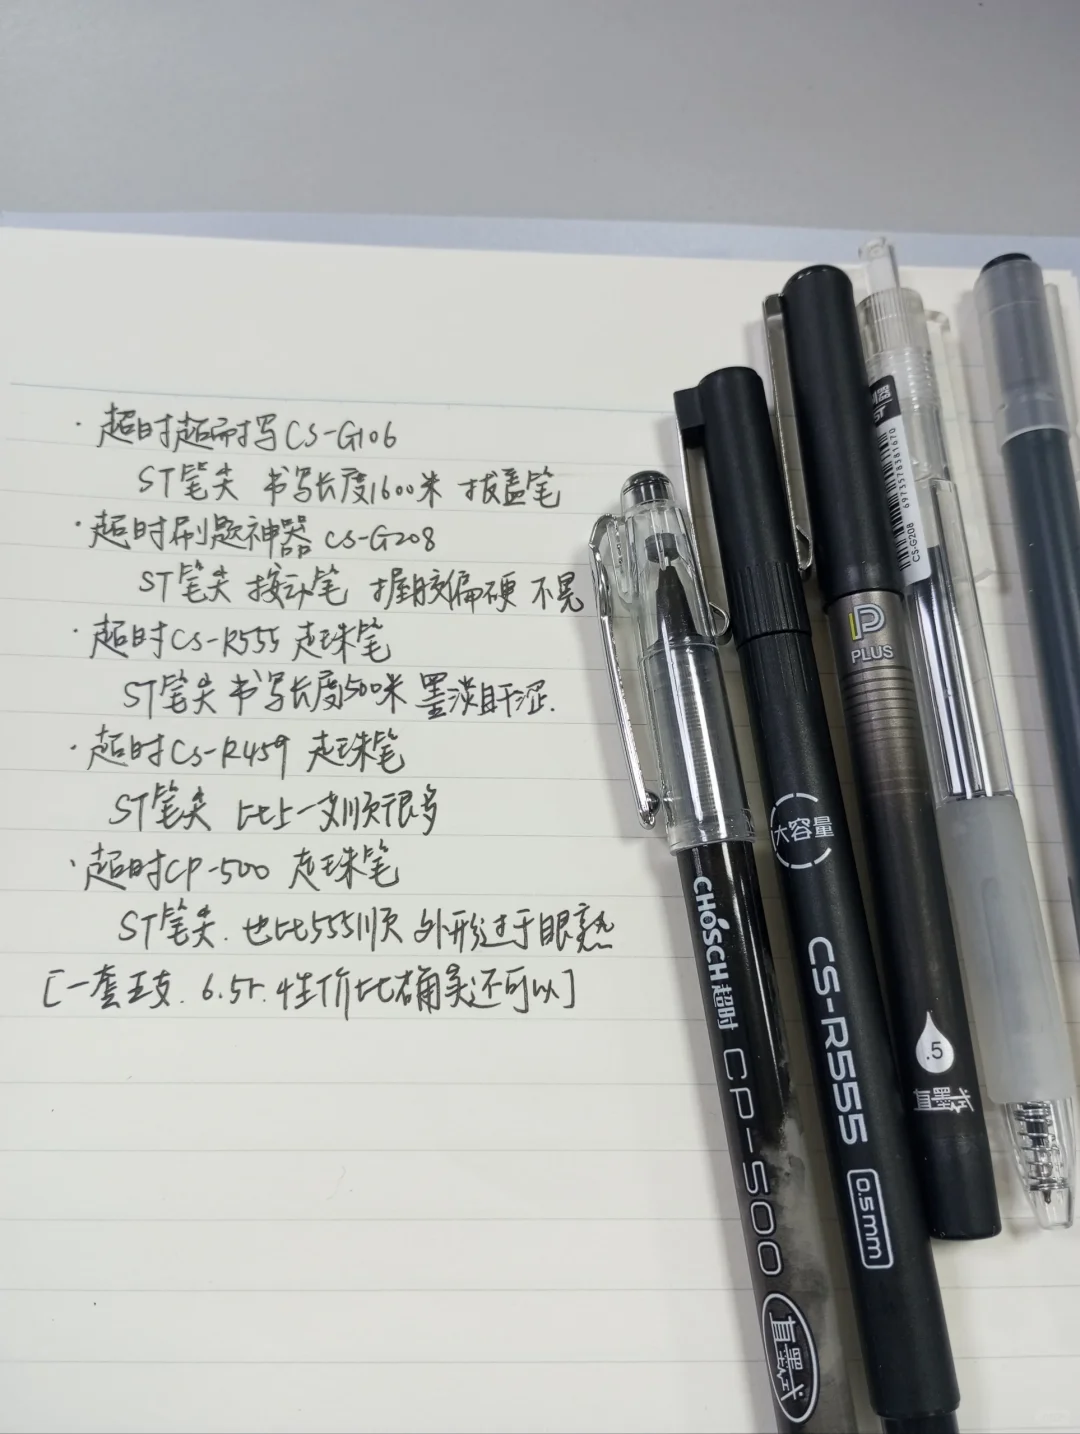 · 超时超耐写 CS-G106
ST笔尖 书写长度1600米 拔盖笔
· 超时刷题神器 CS-G208
ST笔尖 按动笔 握胶偏硬 不晃
· 超时CS-R555 走珠笔
ST笔尖 书写长度500米 墨淡且干涩.
· 超时CS-R459 走珠笔
ST笔尖 比上一支顺很多
· 超时CP-500 走珠笔
ST笔尖. 也比555顺 外形过于眼熟
[一套五支. 6.5r. 性价比确实还可以]
CHOSCH 超时 CP-500 直墨式
大容量 CS-R555 0.5mm
P PLUS
.5
6973578381670
CS-G208